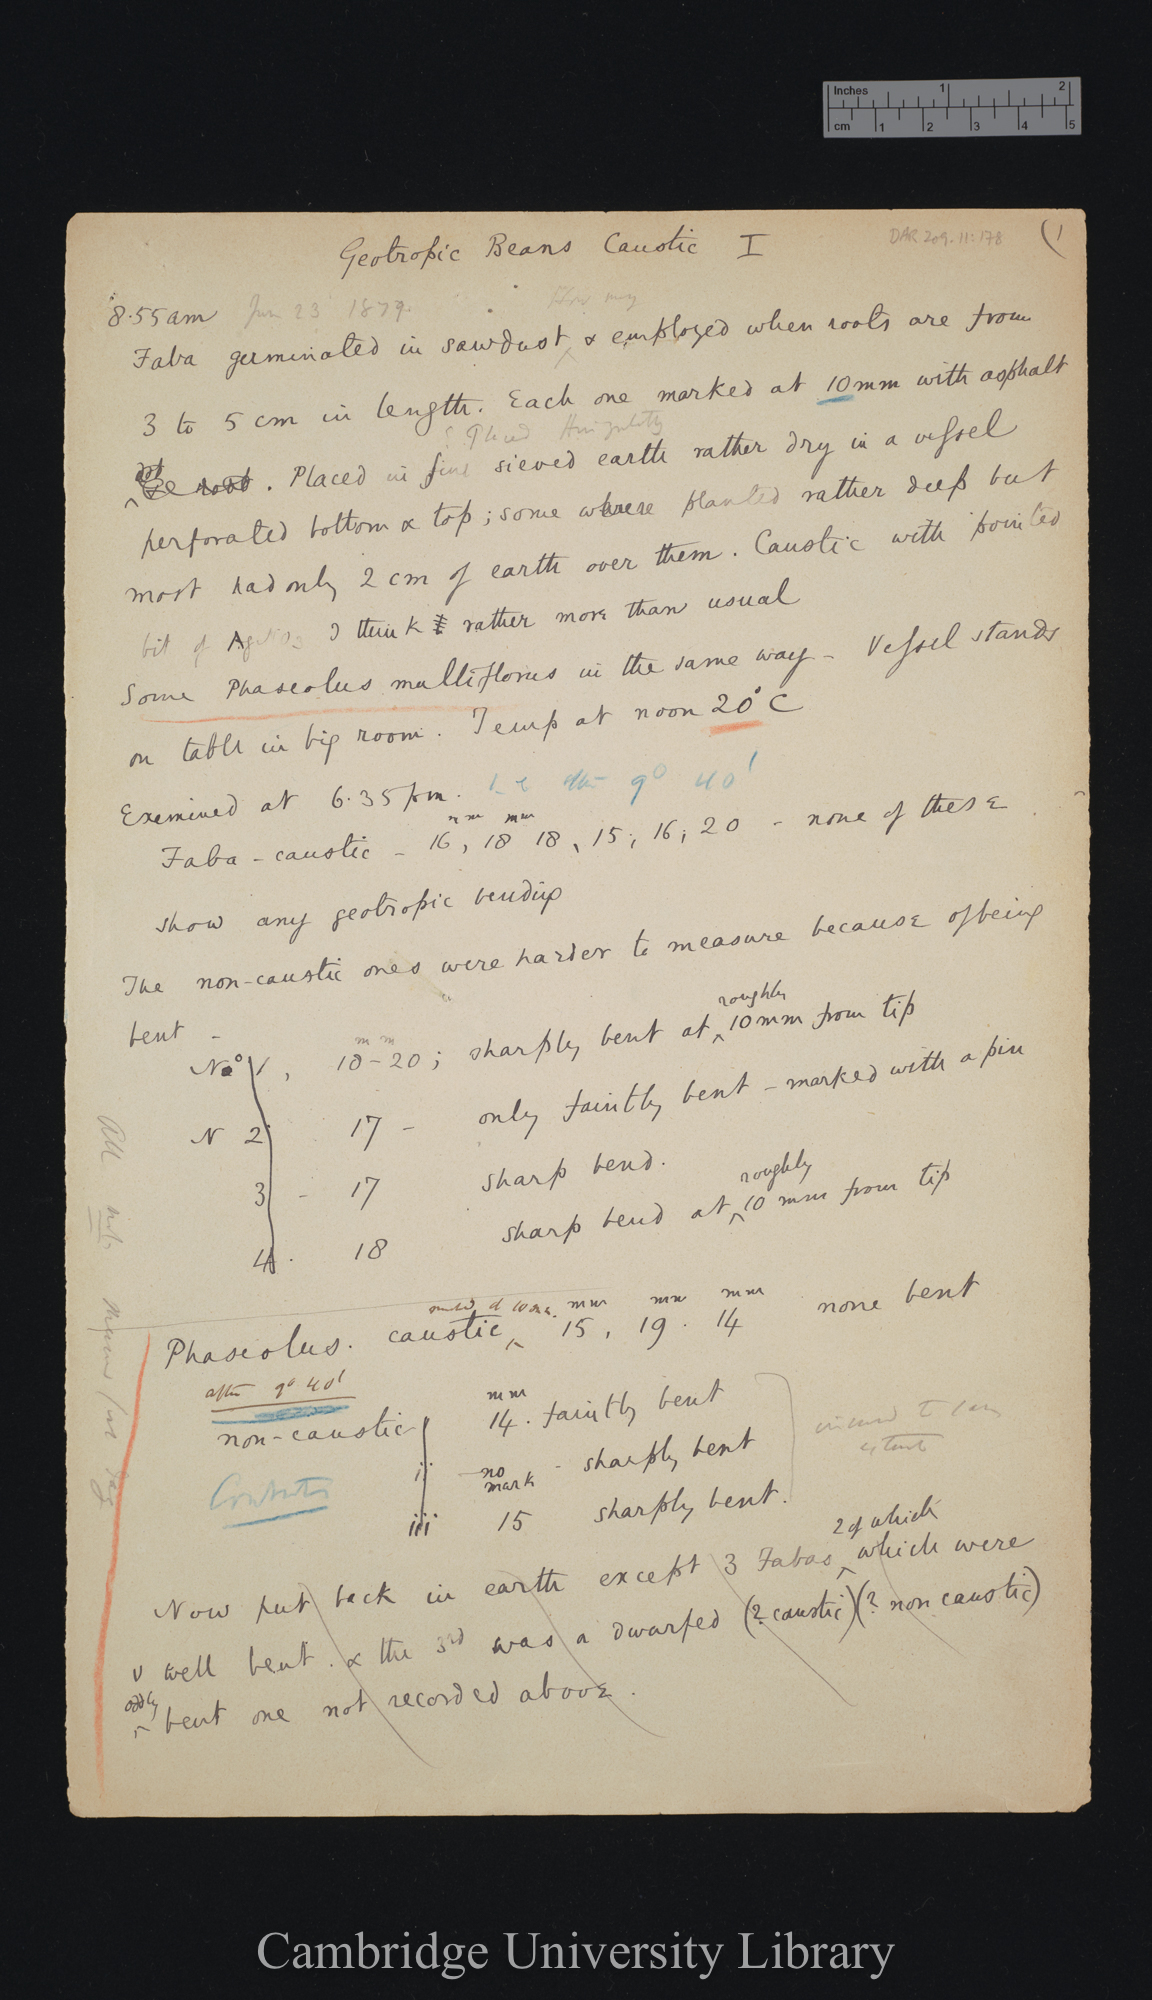 Inches 1 2
cm 1 2 3 4 5
Geotropic Beans Caustic I
DAR 209.11:178
(1
8.55am Jun 23 1879.
How many
Faba germinated in sawdust & employed when roots are from
3 to 5 cm in length. Each one marked at 10mm with asphalt
? Placed Horizontally
dot
. Placed in fine sieved earth rather dry in a vessel
perforated bottom & top; some where planted rather deep but
most had only 2 cm of earth over them. Caustic with pointed
bit of AgNO3 I think rather more than usual
Some Phaseolus multiflorus in the same way - Vessel stands
on table in big room. Temp at noon 20° C
Examined at 6.35 pm. i.e. after 9° 40'
mm mm
Faba - caustic - 16, 18 18, 15; 16; 20 - none of these
show any geotropic bending
The non-caustic ones were harder to measure because of being
bent -
roughly
mm
No 1, 18-20; sharply bent at 10mm from tip
N 2 17 - only faintly bent - marked with a pin
3 - 17 sharp bend.
roughly
4. 18 sharp bend at 10 mm from tip
All
mm mm mm
Phaseolus. caustic 15, 19. 14 none bent
after 9° 40'
mm
non-caustic 14. faintly bent
ii - no mark - sharply bent
Controls
iii 15 sharply bent.
2 of which
Now put back in earth except 3 Fabas which were
v well bent. & the 3rd was a dwarfed (? caustic) (? non caustic)
oddly
bent one not recorded above.
Cambridge University Library